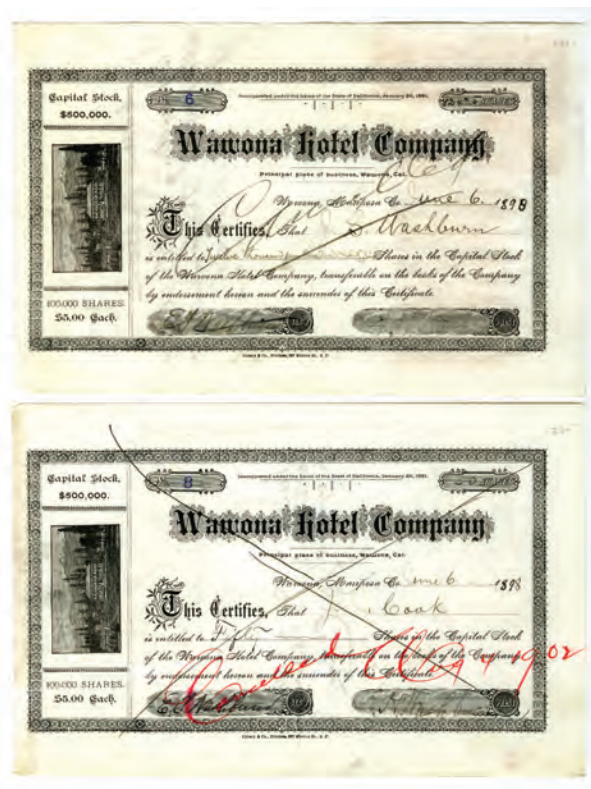 Capital Stock,
$500,000.
100,000 SHARES.
$5.00 Each.
6
SHARES
Incorporated under the Laws of the State of California, January 20, 1891.
Wawona Hotel Company
Principal place of business, Wawona, Cal.
Wawona, Mariposa Co. June 6. 1898
This Certifies, That S. Washburn
is entitled to Twelve Shares in the Capital Stock
of the Wawona Hotel Company, transferable on the books of the Company
by endorsement hereon and the surrender of this Certificate.
Capital Stock,
$500,000.
100,000 SHARES.
$5.00 Each.
8
Incorporated under the Laws of the State of California, January 20, 1891.
Wawona Hotel Company
Principal place of business, Wawona, Cal.
Wawona, Mariposa Co. June 6 1898
This Certifies, That Cook
is entitled to Fifty Shares in the Capital Stock
of the Wawona Hotel Company, transferable on the books of the Company
by endorsement hereon and the surrender of this Certificate.
Cancelled 1902